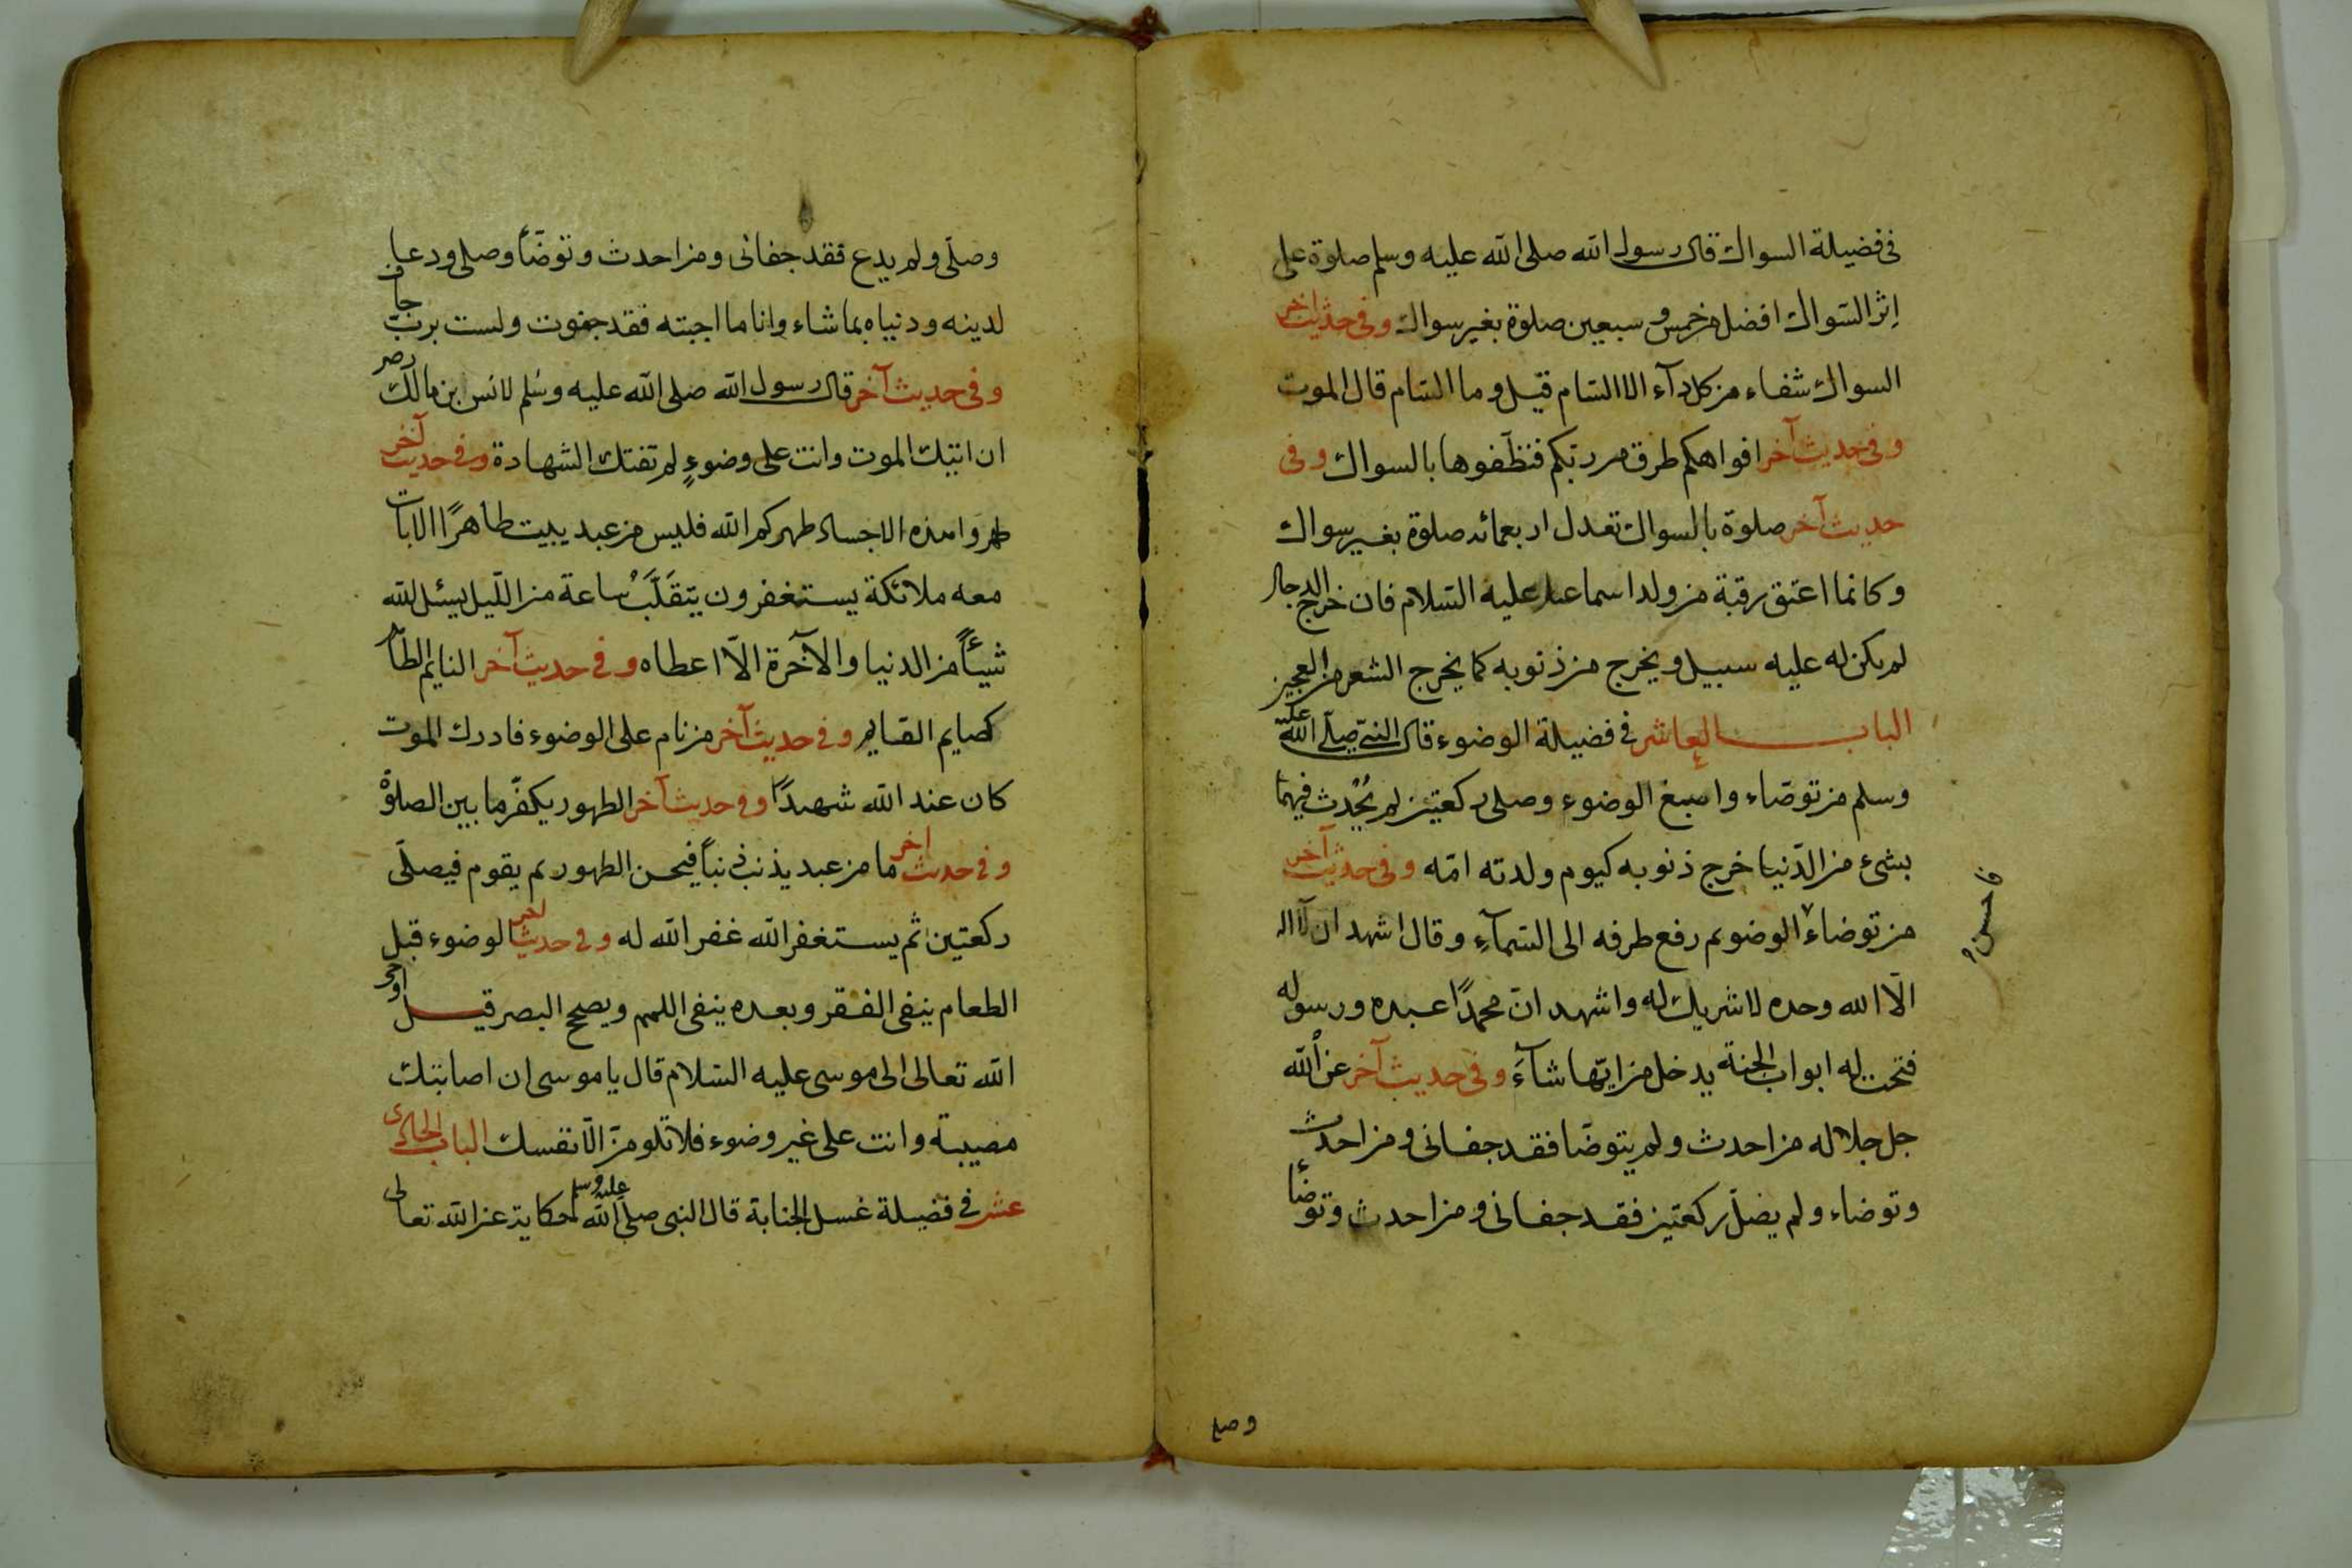 فى فضيلة السواك قال رسول الله صلى الله عليه وسلم صلوة على
إثر السّواك افضل من خمس و سبعين صلوة بغير سواك وفى حديث اخر
السواك شفاء من كل دآء الا السّام قيل وما السّام قال الموت
وفى حديث آخر افواهكم طرق من ربّكم فنظّفوها بالسواك وفى
حديث آخر صلوة بالسواك تعدل اربعمائه صلوة بغير سواك
وكانما اعتق رقبة من ولد اسماعيل عليه السّلام فان خرج الدجال
لم يكن له عليه سبيل ويخرج من ذنوبه كما يخرج الشعر من العجين
الباب العاشر فى فضيلة الوضوء قال النبى صلّى الله عليه
وسلم من توضّاء واسبغ الوضوء وصلى ركعتين لم يُحْدث فيهما
بشئ من الدّنيا خرج ذنوبه كيوم ولدته امّه وفى حديث آخر
من توضاء الوضو ثم رفع طرفه الى السّمآءِ وقال اشهد ان لآ اله
فاحسن
الّا الله وحده لا شريك له واشهد انّ محمدًا عبده ورسوله
فتحت له ابواب الجنة يدخل من ايّها شآءَ وفى حديث آخر عن الله
جل جلاله من احدث ولم يتوضّا فقد جفانى ومن احدث
وتوضاء ولم يصلّ ركعتين فقد جفانى ومن احدث وتوضّأ
وصلى
وصلّى ولم يدع فقد جفانى ومن احدث وتوضّأ وصلى ودعا
لدينه ودنياه بما شاء وانا ما اجبته فقد جفوت ولست بربّ جاف
وفى حديث آخر قال رسول الله صلى الله عليه وسلم لانس بن مالك رضى
ان اتتك الموت وانت على وضوءٍ لم تفتك الشهادة وفى حديث آخر
طهروا هذه الاجساد طهركم الله فليس من عبد يبيت طاهرًا الا بات
معه ملائكة يستغفرون يتقلّب ساعة من اللّيل يسئل لله
شيئاً من الدنيا والآخرة الّا اعطاه وفى حديث آخر النايم الطاهر
كصايم القايم وفى حديث آخر من نام على الوضوء فادرك الموت
كان عند الله شهيدًا وفى حديث آخر الطهور يكفّر ما بين الصلوة
وفى حديث اخر ما من عبد يذنب ذنباً فيحسن الطهور ثم يقوم فيصلّى
ركعتين ثم يستغفر الله غفر الله له وفى حديث اخر الوضوء قبل
الطعام ينفى الفقر وبعده ينفى اللمم ويصح البصر قيل اوحى
الله تعالى الى موسى عليه السّلام قال يا موسى ان اصابتك
مصيبة وانت على غير وضوء فلا تلومنّ الّا نفسك الباب الحادى
عشر فى فضيلة غسل الجنابة قال النبى صلى الله عليه وسلم حكاية عن الله تعالى